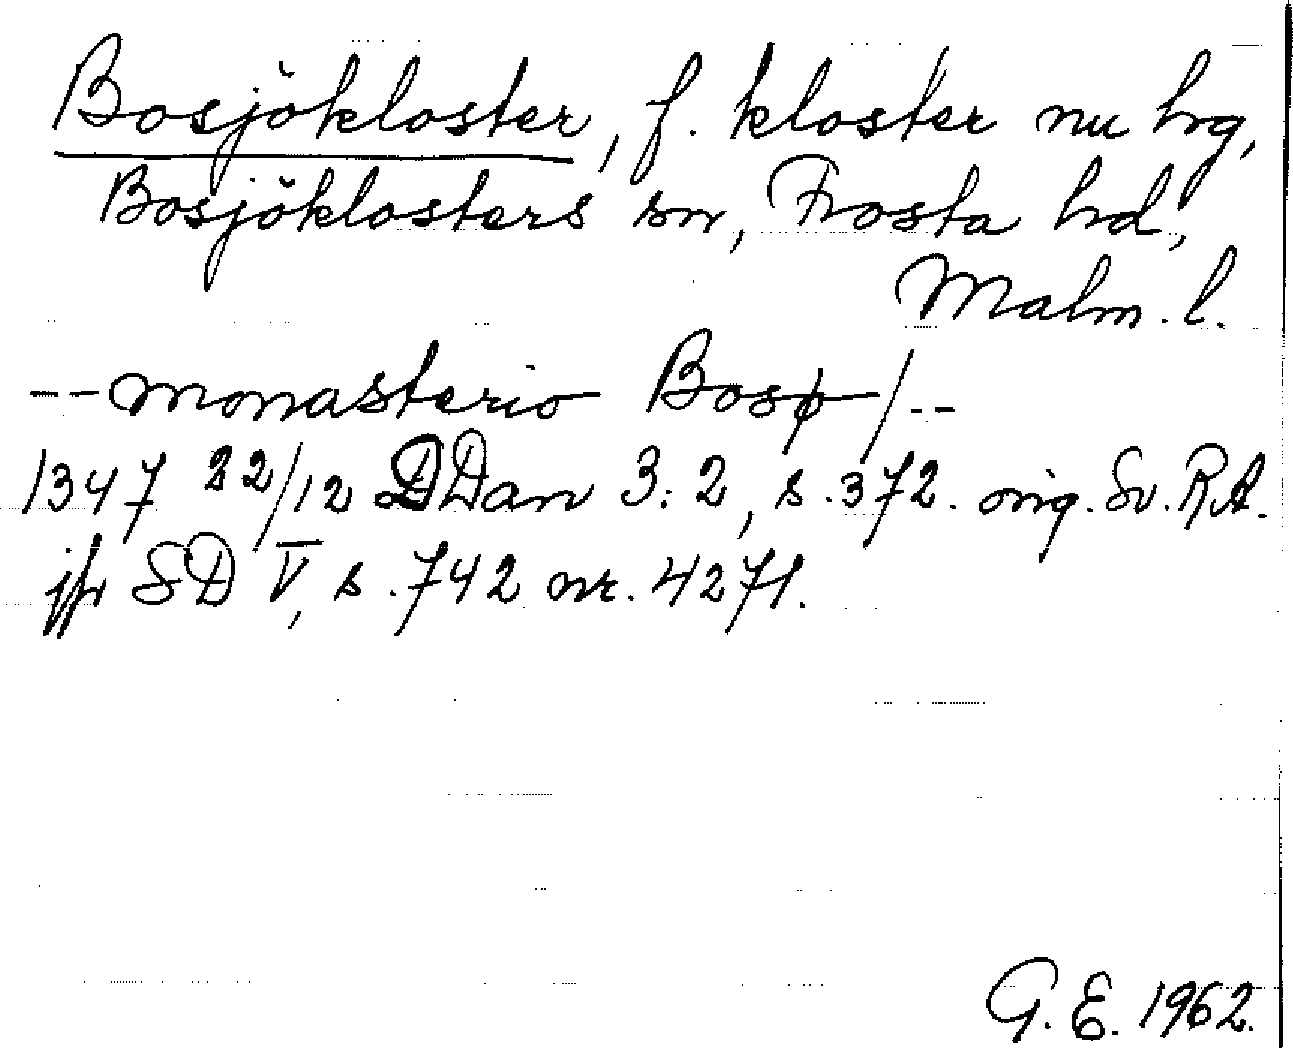 Bosjökloster, f. kloster nu hrg,
Bosjöklosters sn, Frosta hd,
Malm. l.
-- monasterio Bosø / --
1347 22/12 DDan 3:2, s. 372. orig. Sv. R.A.
jfr SD V, s. 742 nr. 4271.
G. E. 1962.